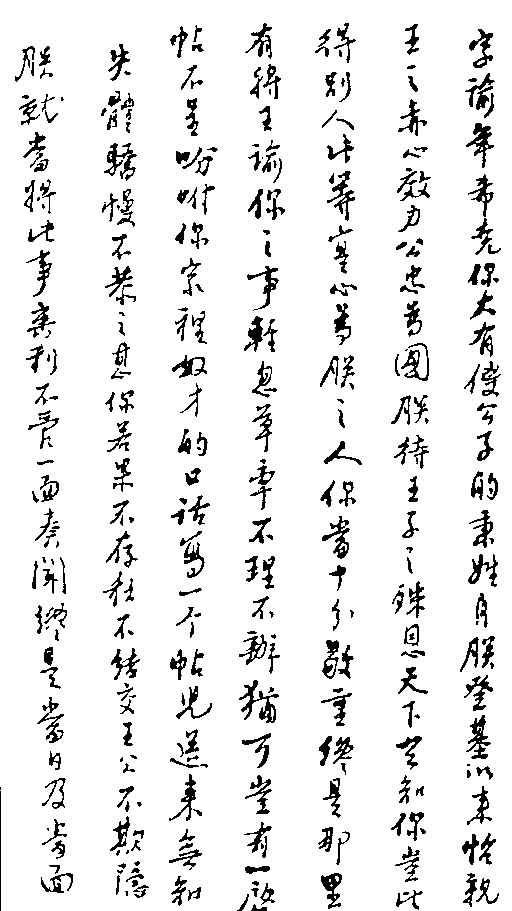 字諭年希堯你大有傻公子的秉姓自朕登基以來怡親
王之赤心效力公忠為國朕待王子之殊恩天下共知你豈比
得別人此等實心為朕之人你當十分敬重纔是那里
有將王諭你之事輕忽草率不理不辦猶可豈有一啟
帖不呈吩咐你家裡奴才的口話寫一个帖兒送來無知
失體驕慢不恭之甚你若果不存私不結交王公不欺隱
朕就當將此事利不管一面奏聞纔是當日及當面